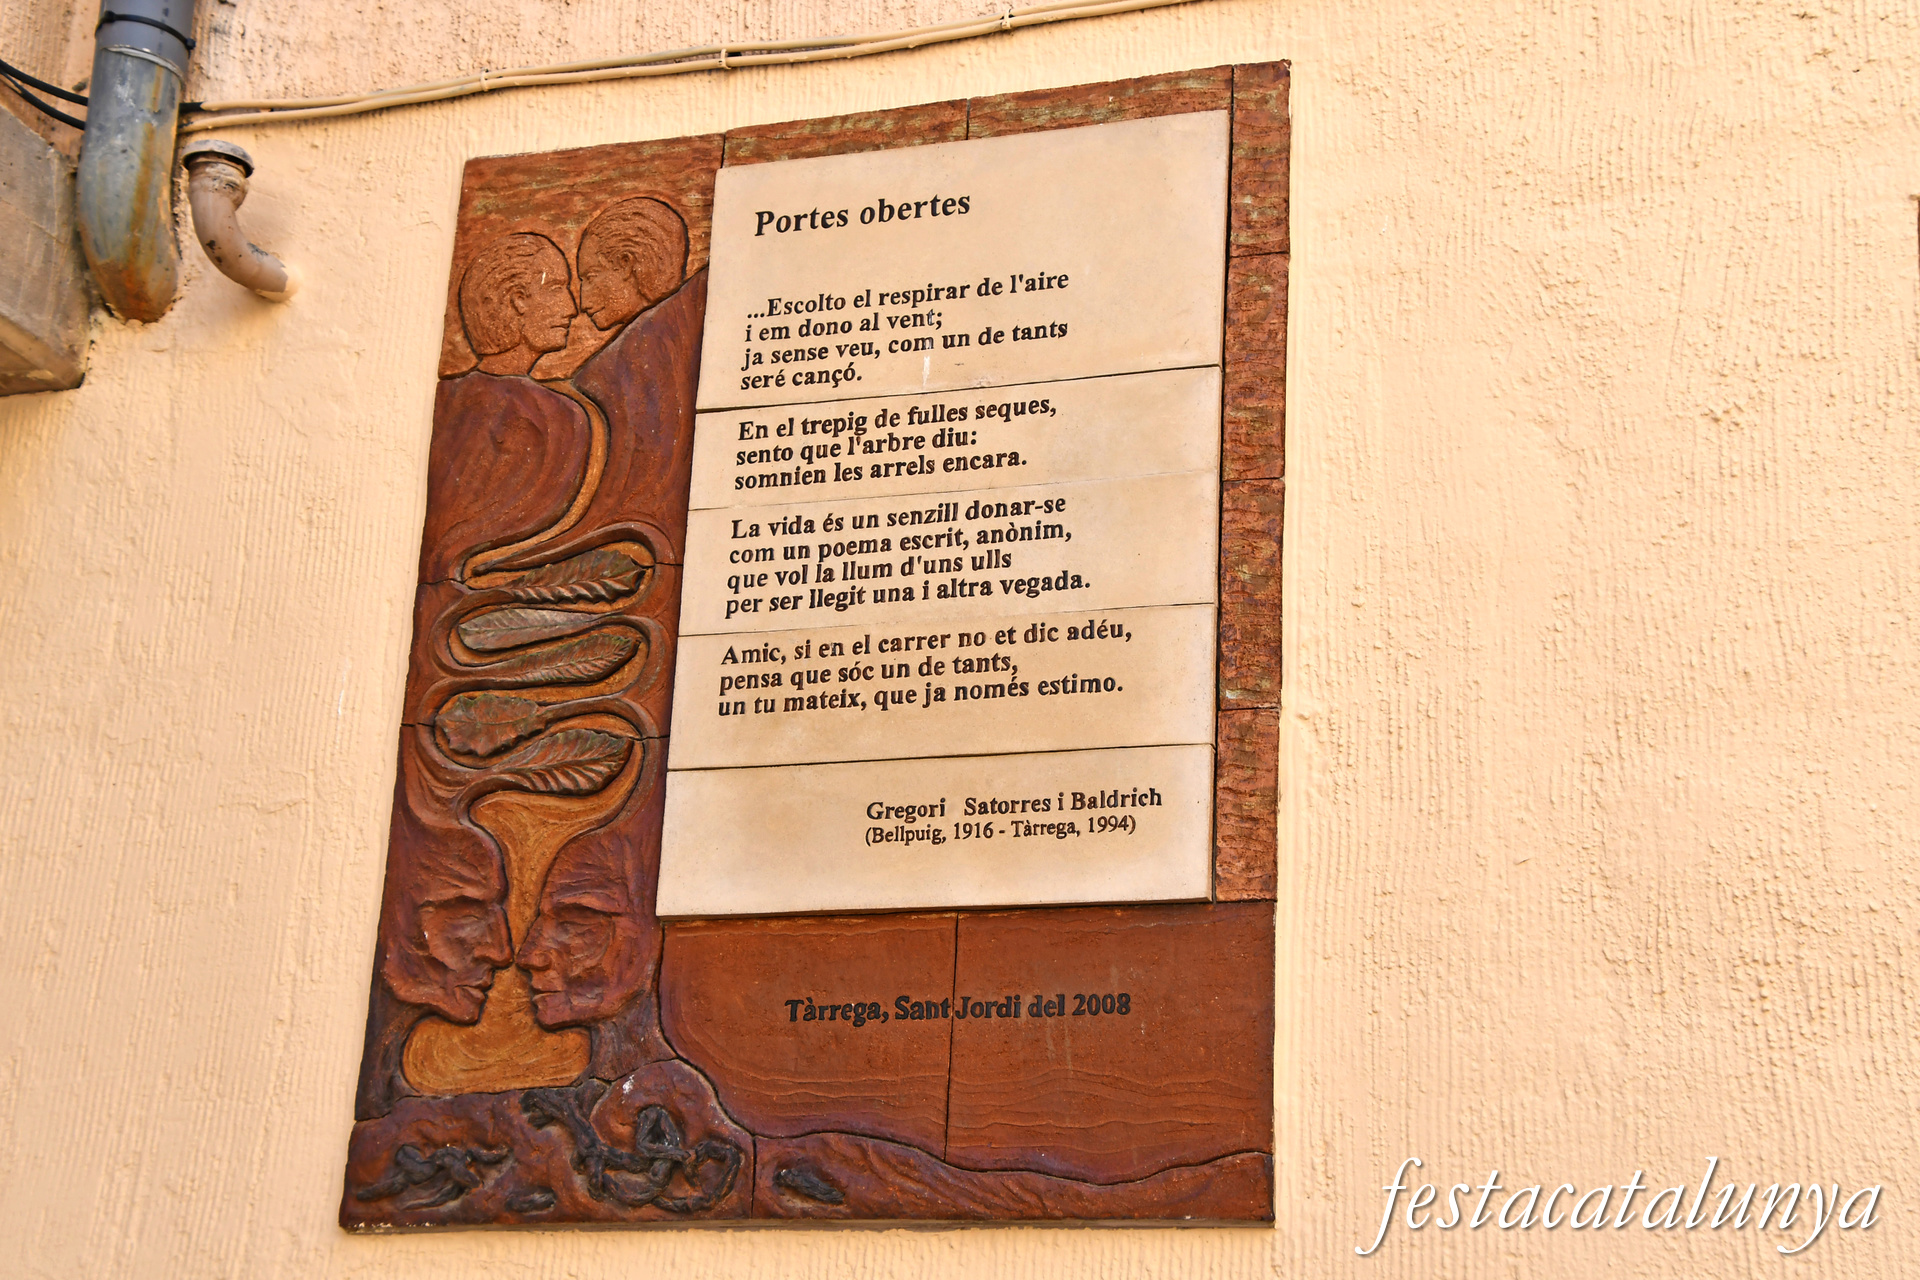 Portes obertes
...Escolto el respirar de l'aire
i em dono al vent;
ja sense veu, com un de tants
seré cançó.
En el trepig de fulles seques,
sento que l'arbre diu:
somnien les arrels encara.
La vida és un senzill donar-se
com un poema escrit, anònim,
que vol la llum d'uns ulls
per ser llegit una i altra vegada.
Amic, si en el carrer no et dic adéu,
pensa que sóc un de tants,
un tu mateix, que ja només estimo.
Gregori Satorres i Baldrich
(Bellpuig, 1916 - Tàrrega, 1994)
Tàrrega, Sant Jordi del 2008
festacatalunya